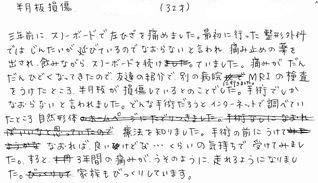 半月板損傷 (32才)
三年前に、スノーボードで左ひざを痛めました。最初に行った整形外科
ではじん帯が延びているのでなおらないと言われ、痛み止めの薬を
出され、飲みながらスノーボードを続けました。痛みがだん
だんひどくなってきたので友達の紹介で別の病院 MRIの検査
をうけたところ、半月板が損傷しているとのことでした。手術でしか
なおらないと言われました。どんな手術だろうとインターネットで調べてい
たところ自然形体 療法を知りました。手術の前にうけて
なおれば良いけどな…くらいの気持ちで受けてみまし
た。すると3年間の痛みが、うそのように、走れるようになりまし
た。家族もびっくりしています。